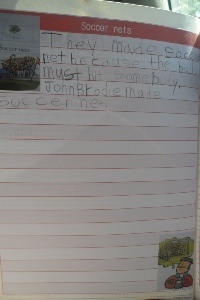 Soccer nets
They made soc
net because the ball
must hit somebody.
John Brodie made
soccer nes